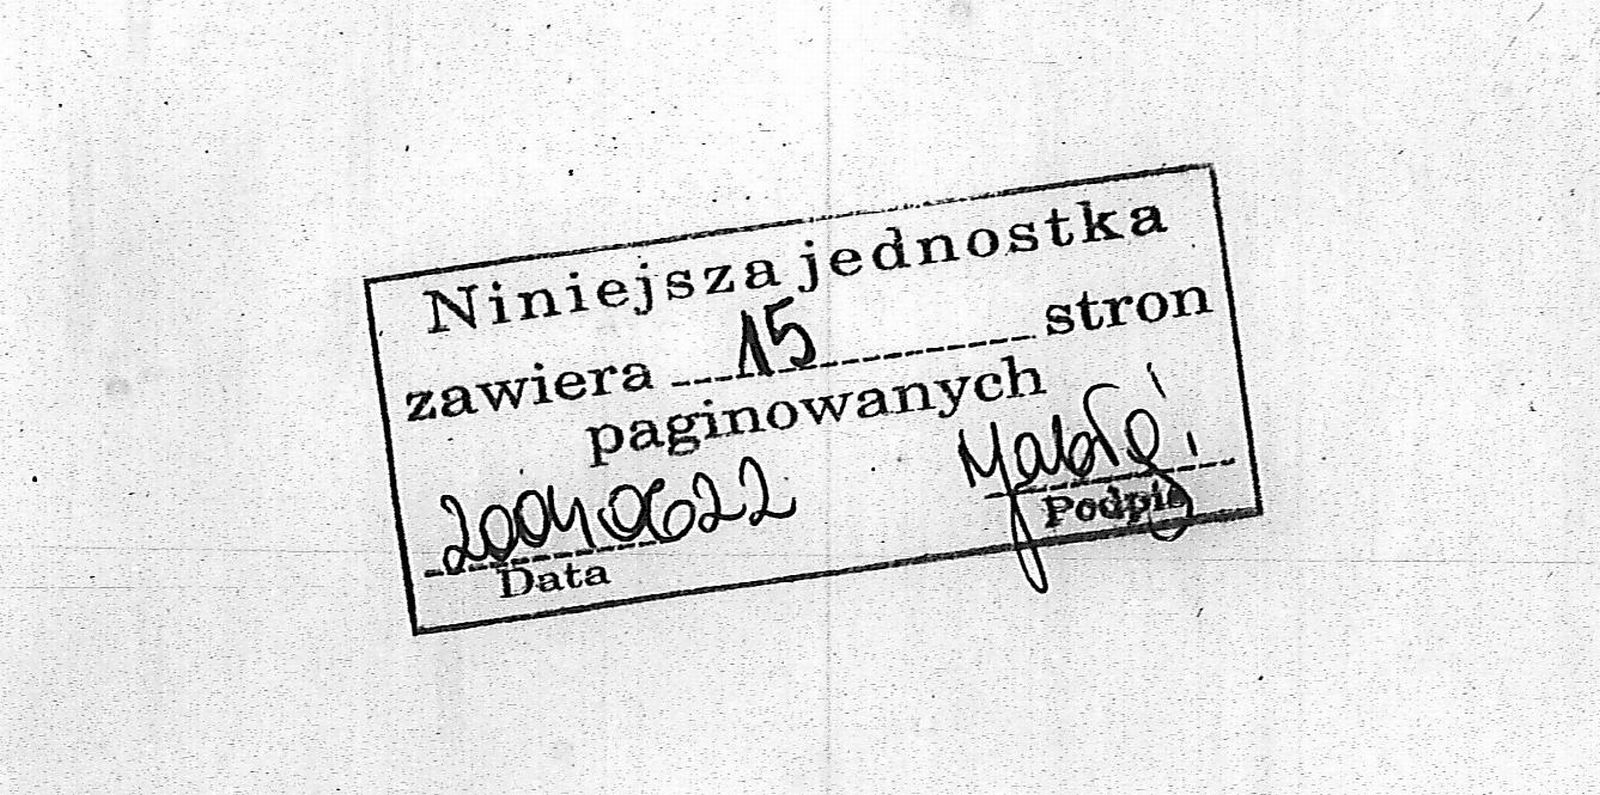 Niniejsza jednostka
zawiera 15 stron
paginowanych
20040622
Data Podpis